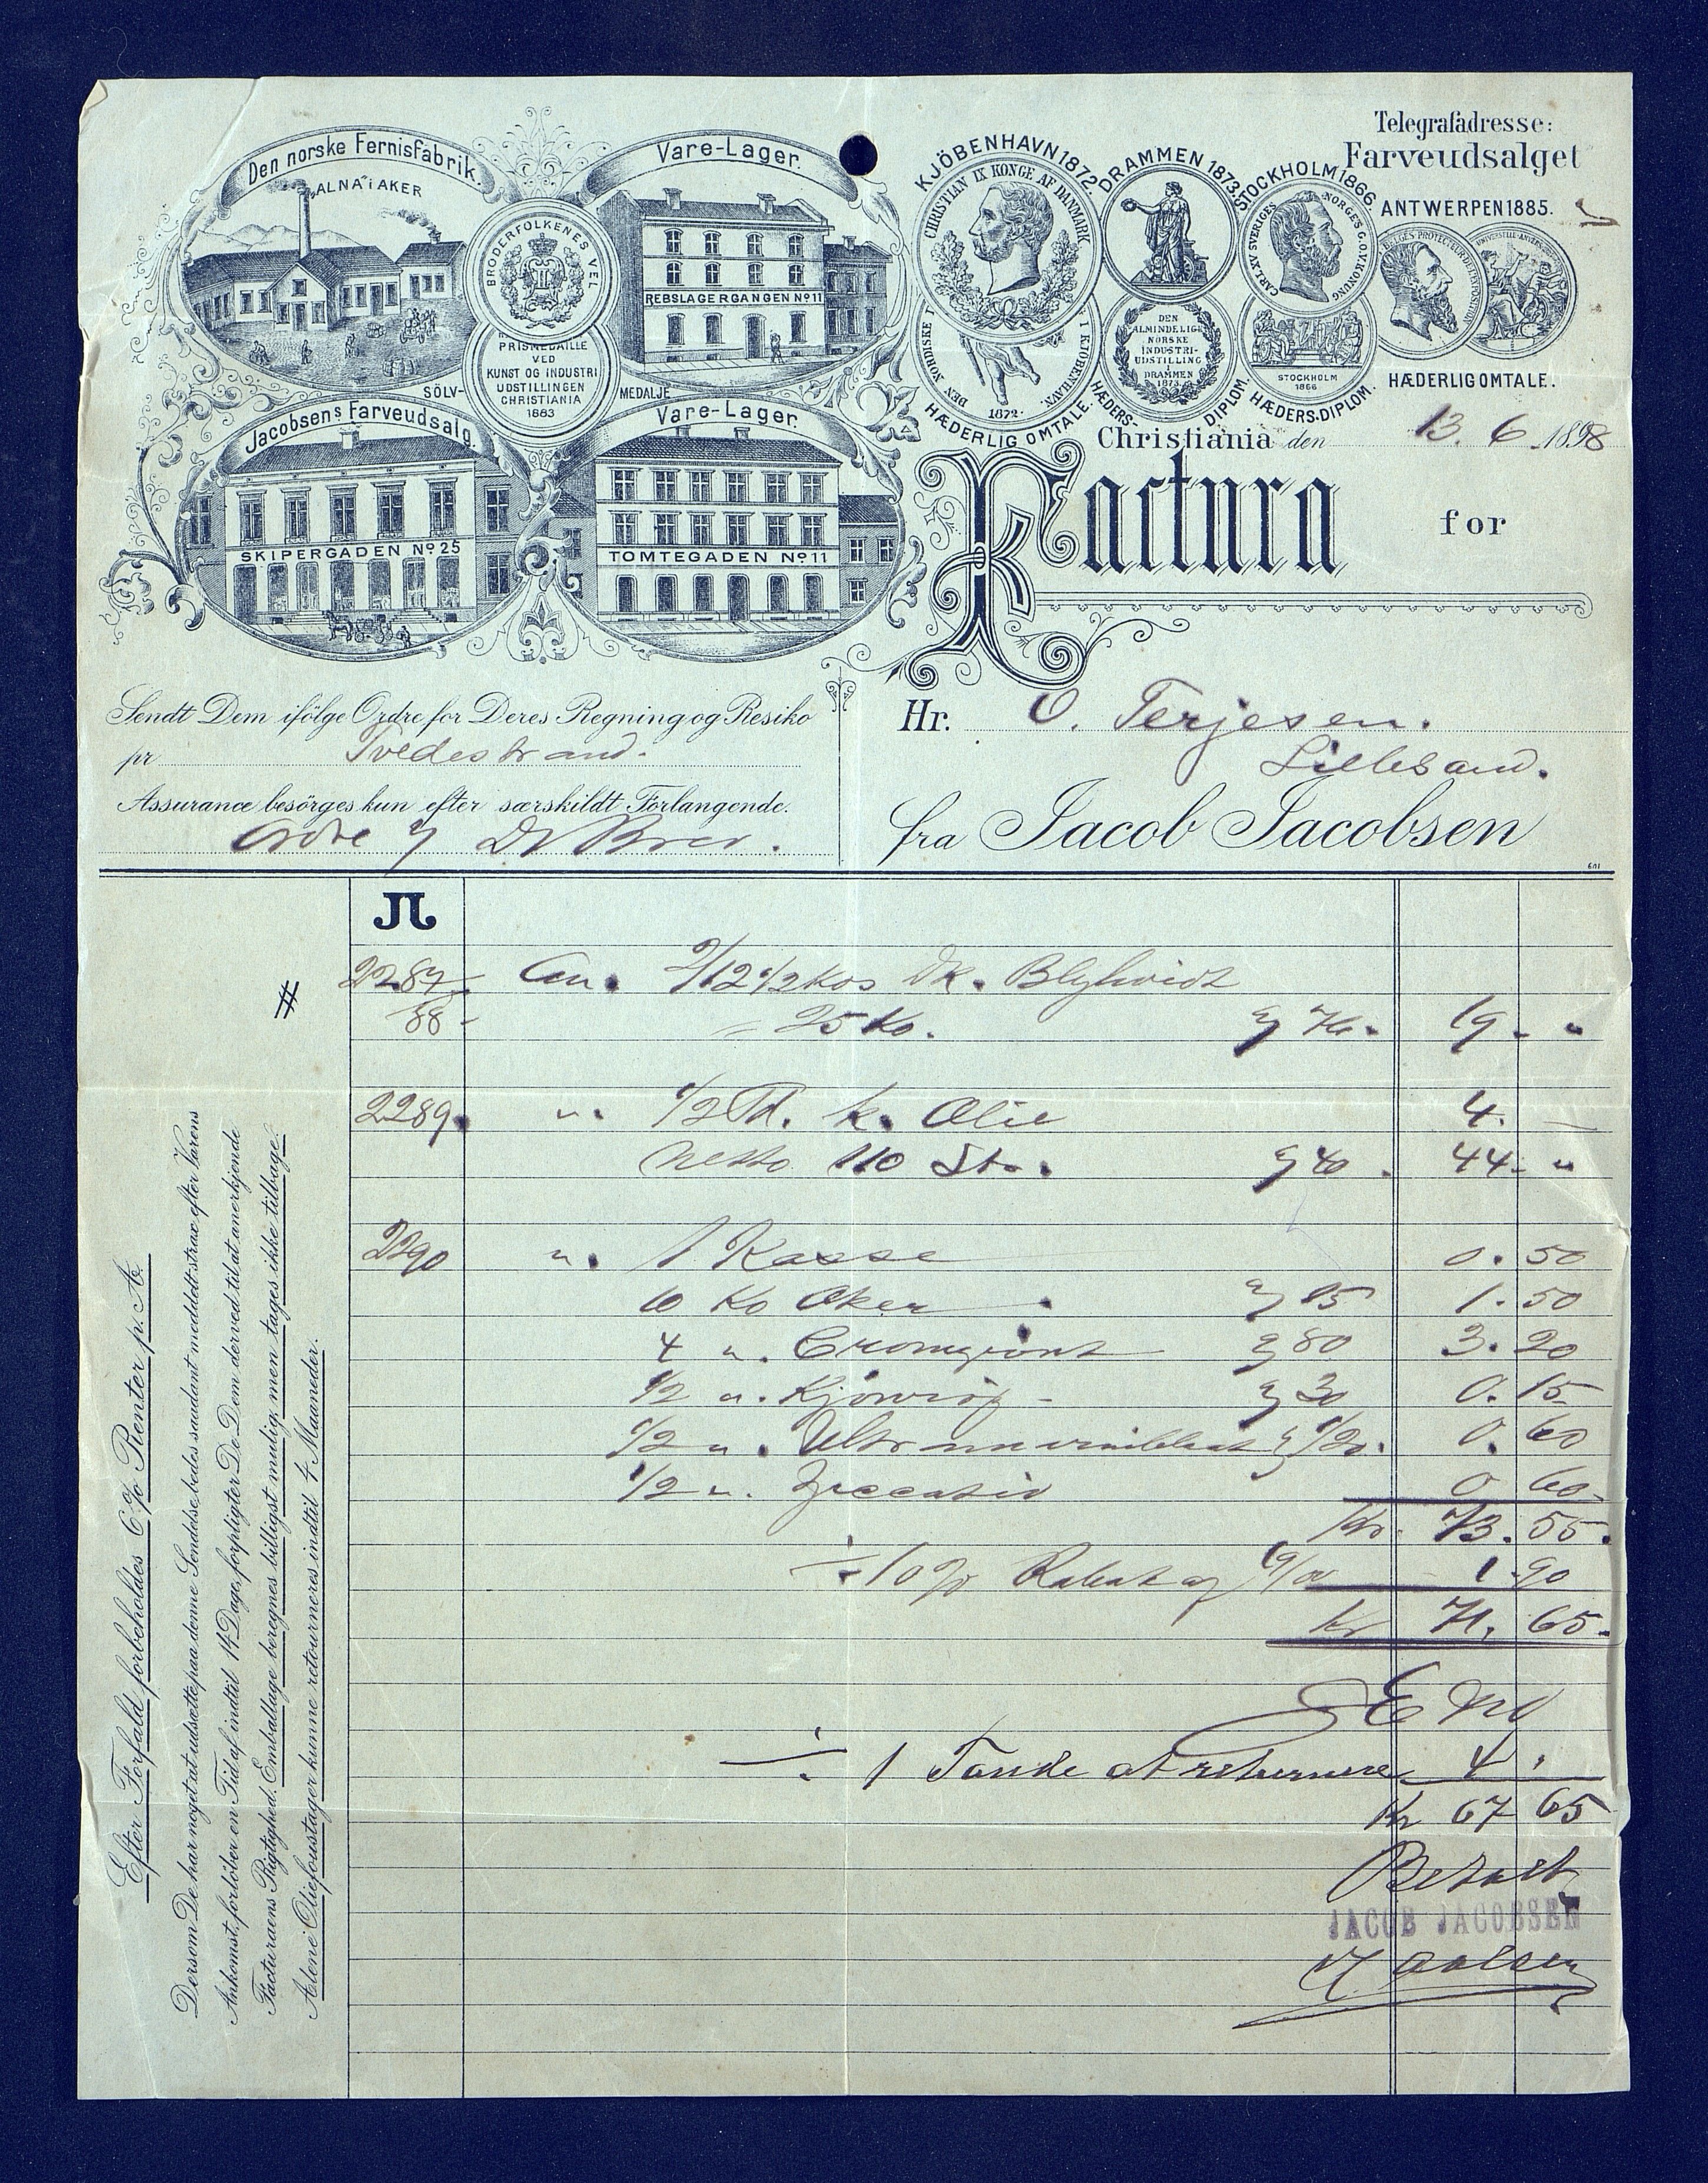 Den norske Fernisfabrik.
"ALNA" i AKER
Vare-Lager.
REBSLAGERGANGEN No 11
BRÖDERFOLKENES VEL
PRISMEDAILLE
VED
KUNST OG INDUSTRI
UDSTILLINGEN
CHRISTIANIA
1883
SÖLV- MEDALJE
Jacobsens Farveudsalg.
SKIPERGADEN No 25
Vare-Lager.
TOMTEGADEN No 11
KJÖBENHAVN 1872.
CHRISTIAN IX KONGE AF DANMARK
DEN NORDISKE I KJÖBENHAVN.
1872.
HÆDERLIG OMTALE.
DRAMMEN 1873.
DEN
ALMINDELIGE
NORSKE
INDUSTRI-
UDSTILLING
I
DRAMMEN
1873.
HÆDERS- DIPLOM.
STOCKHOLM 1866
CARL XV SVERIGES NORGES G.O.V. KONUNG
STOCKHOLM
1866
HÆDERS-DIPLOM.
Telegrafadresse:
Farveudsalget
ANTWERPEN 1885.
HÆDERLIG OMTALE.
Christiania den 13. 6. 1898
Factura for
Sendt Dem ifölge Ordre for Deres Regning og Resiko
pr Tvedestrand.
Assurance besörges kun efter særskildt Forlangende.
Ordre Brev.
Hr. O. Terjesen.
Lillesand.
fra Jacob Jacobsen
601
JL
2287 An. 2/12 1/2 kos Dk. Blyhvidt
88 = 25 Ko. 76. 19. "
2289. ". 1/2 Td. k. Olie 4. —
Netto 110 40. 44. "
2290 ". 1 Kasse 0. 50
10 Ko Oker 15 1. 50
4 ". Cromgrönt 80 3. 20
1/2 ". Kjönrög 30 0. 15
1/2 ". Ultramarinblaat 1/20. 0. 60
1/2 ". Siccativ 0 60
Kr. 73. 55.
÷ 10% Rabat af 19/00 1. 90
Kr 71. 65.
÷ 1 Tønde at returnere 4.
Kr 67 65
Betalt
JACOB JACOBSEN
Efter Forfald forbeholdes 6% Renter p. A.
Dersom De har noget at udsætte paa denne Sendelse, bedes saadant meddelt strax efter Varens
Ankomst, forlöber en Tid af indtil 14 Dage, forpligter De Dem derved til at anerkjende
Facturaens Rigtighed. Emballage beregnes billigst mulig, men tages ikke tilbage.
Alene Oliefoustager kunne retourneres indtil 4 Maaneder.